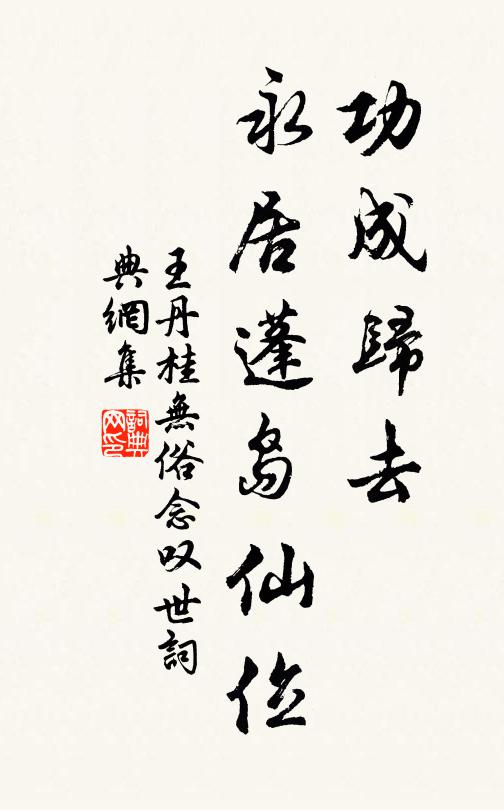 功成歸去
永居蓬島仙位
王丹桂無俗念叹世詞
典網集
詞典
网印